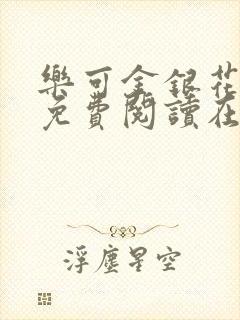 樂可金銀花
免費閱讀在
浮塵星空